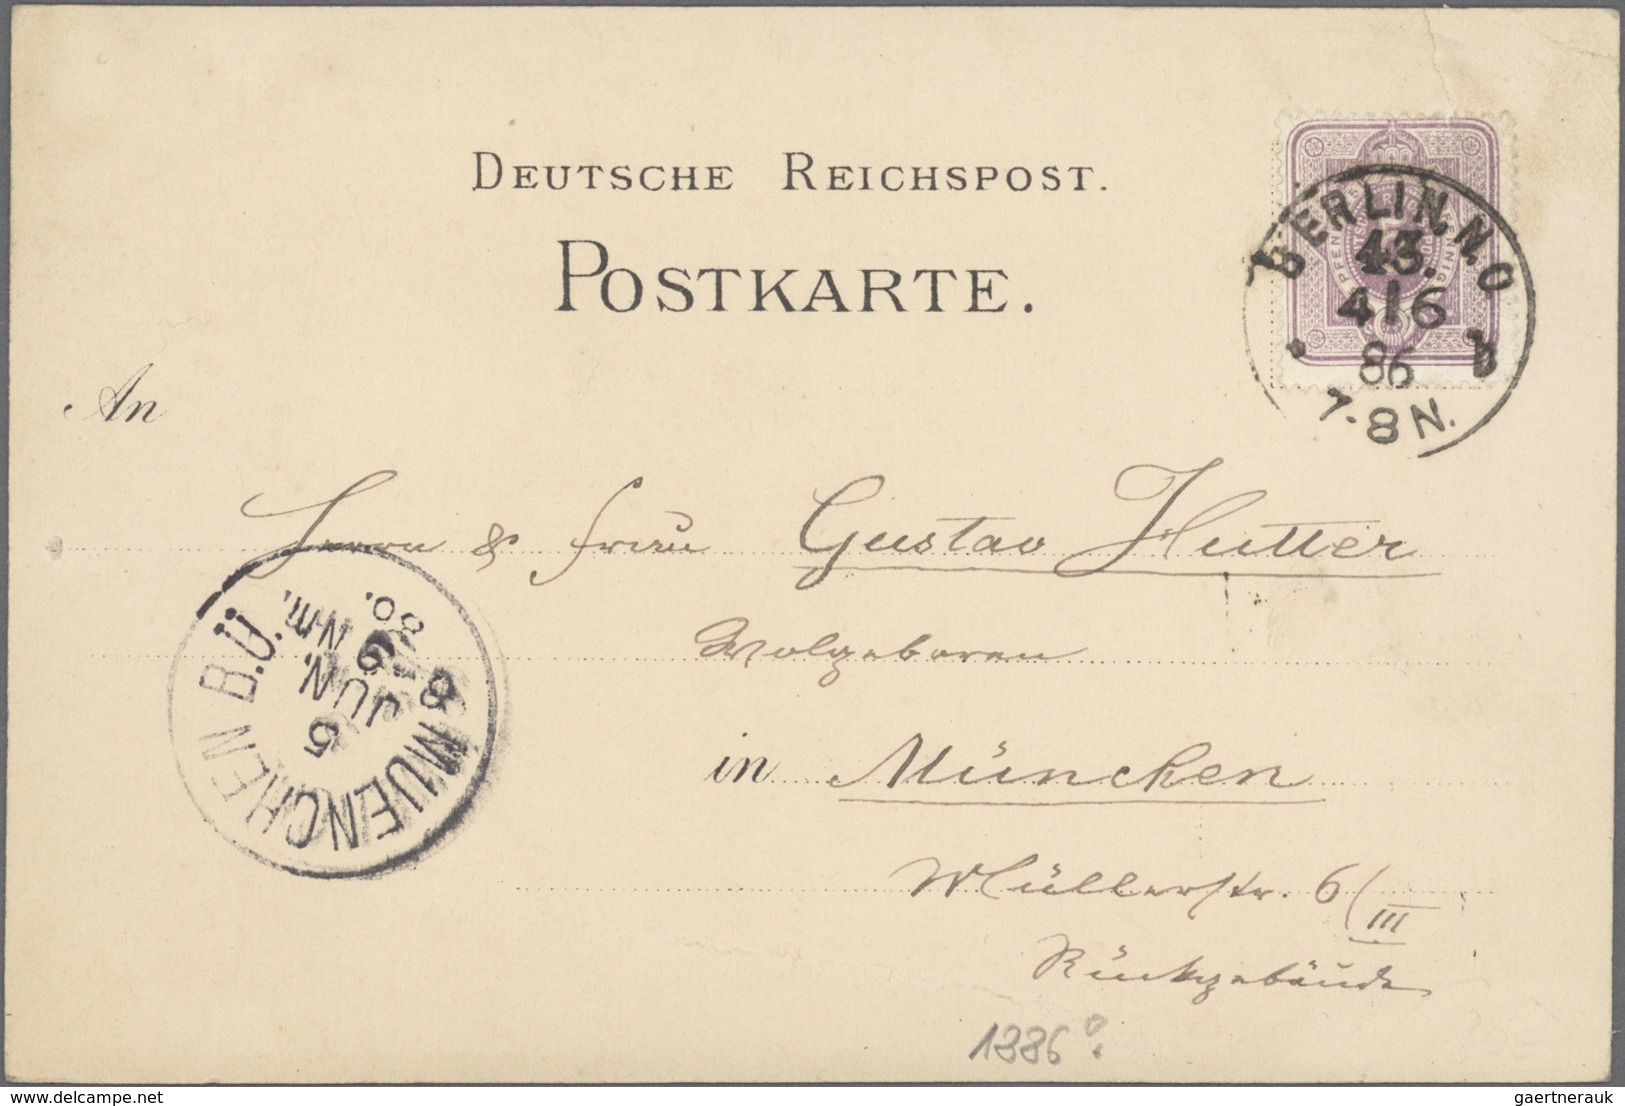 DEUTSCHE REICHSPOST.
POSTKARTE.
BERLIN, N.O
43.
4/6
86
7-8N.
An
Herrn & Frau Gustav Hutter
Wolgeboren
in München
Müllerstr. 6/III
Rückgebäude
MUENCHEN B.Ü.
5
JUN.
Nm.
1886?
delcampe.net
gaertnerauk